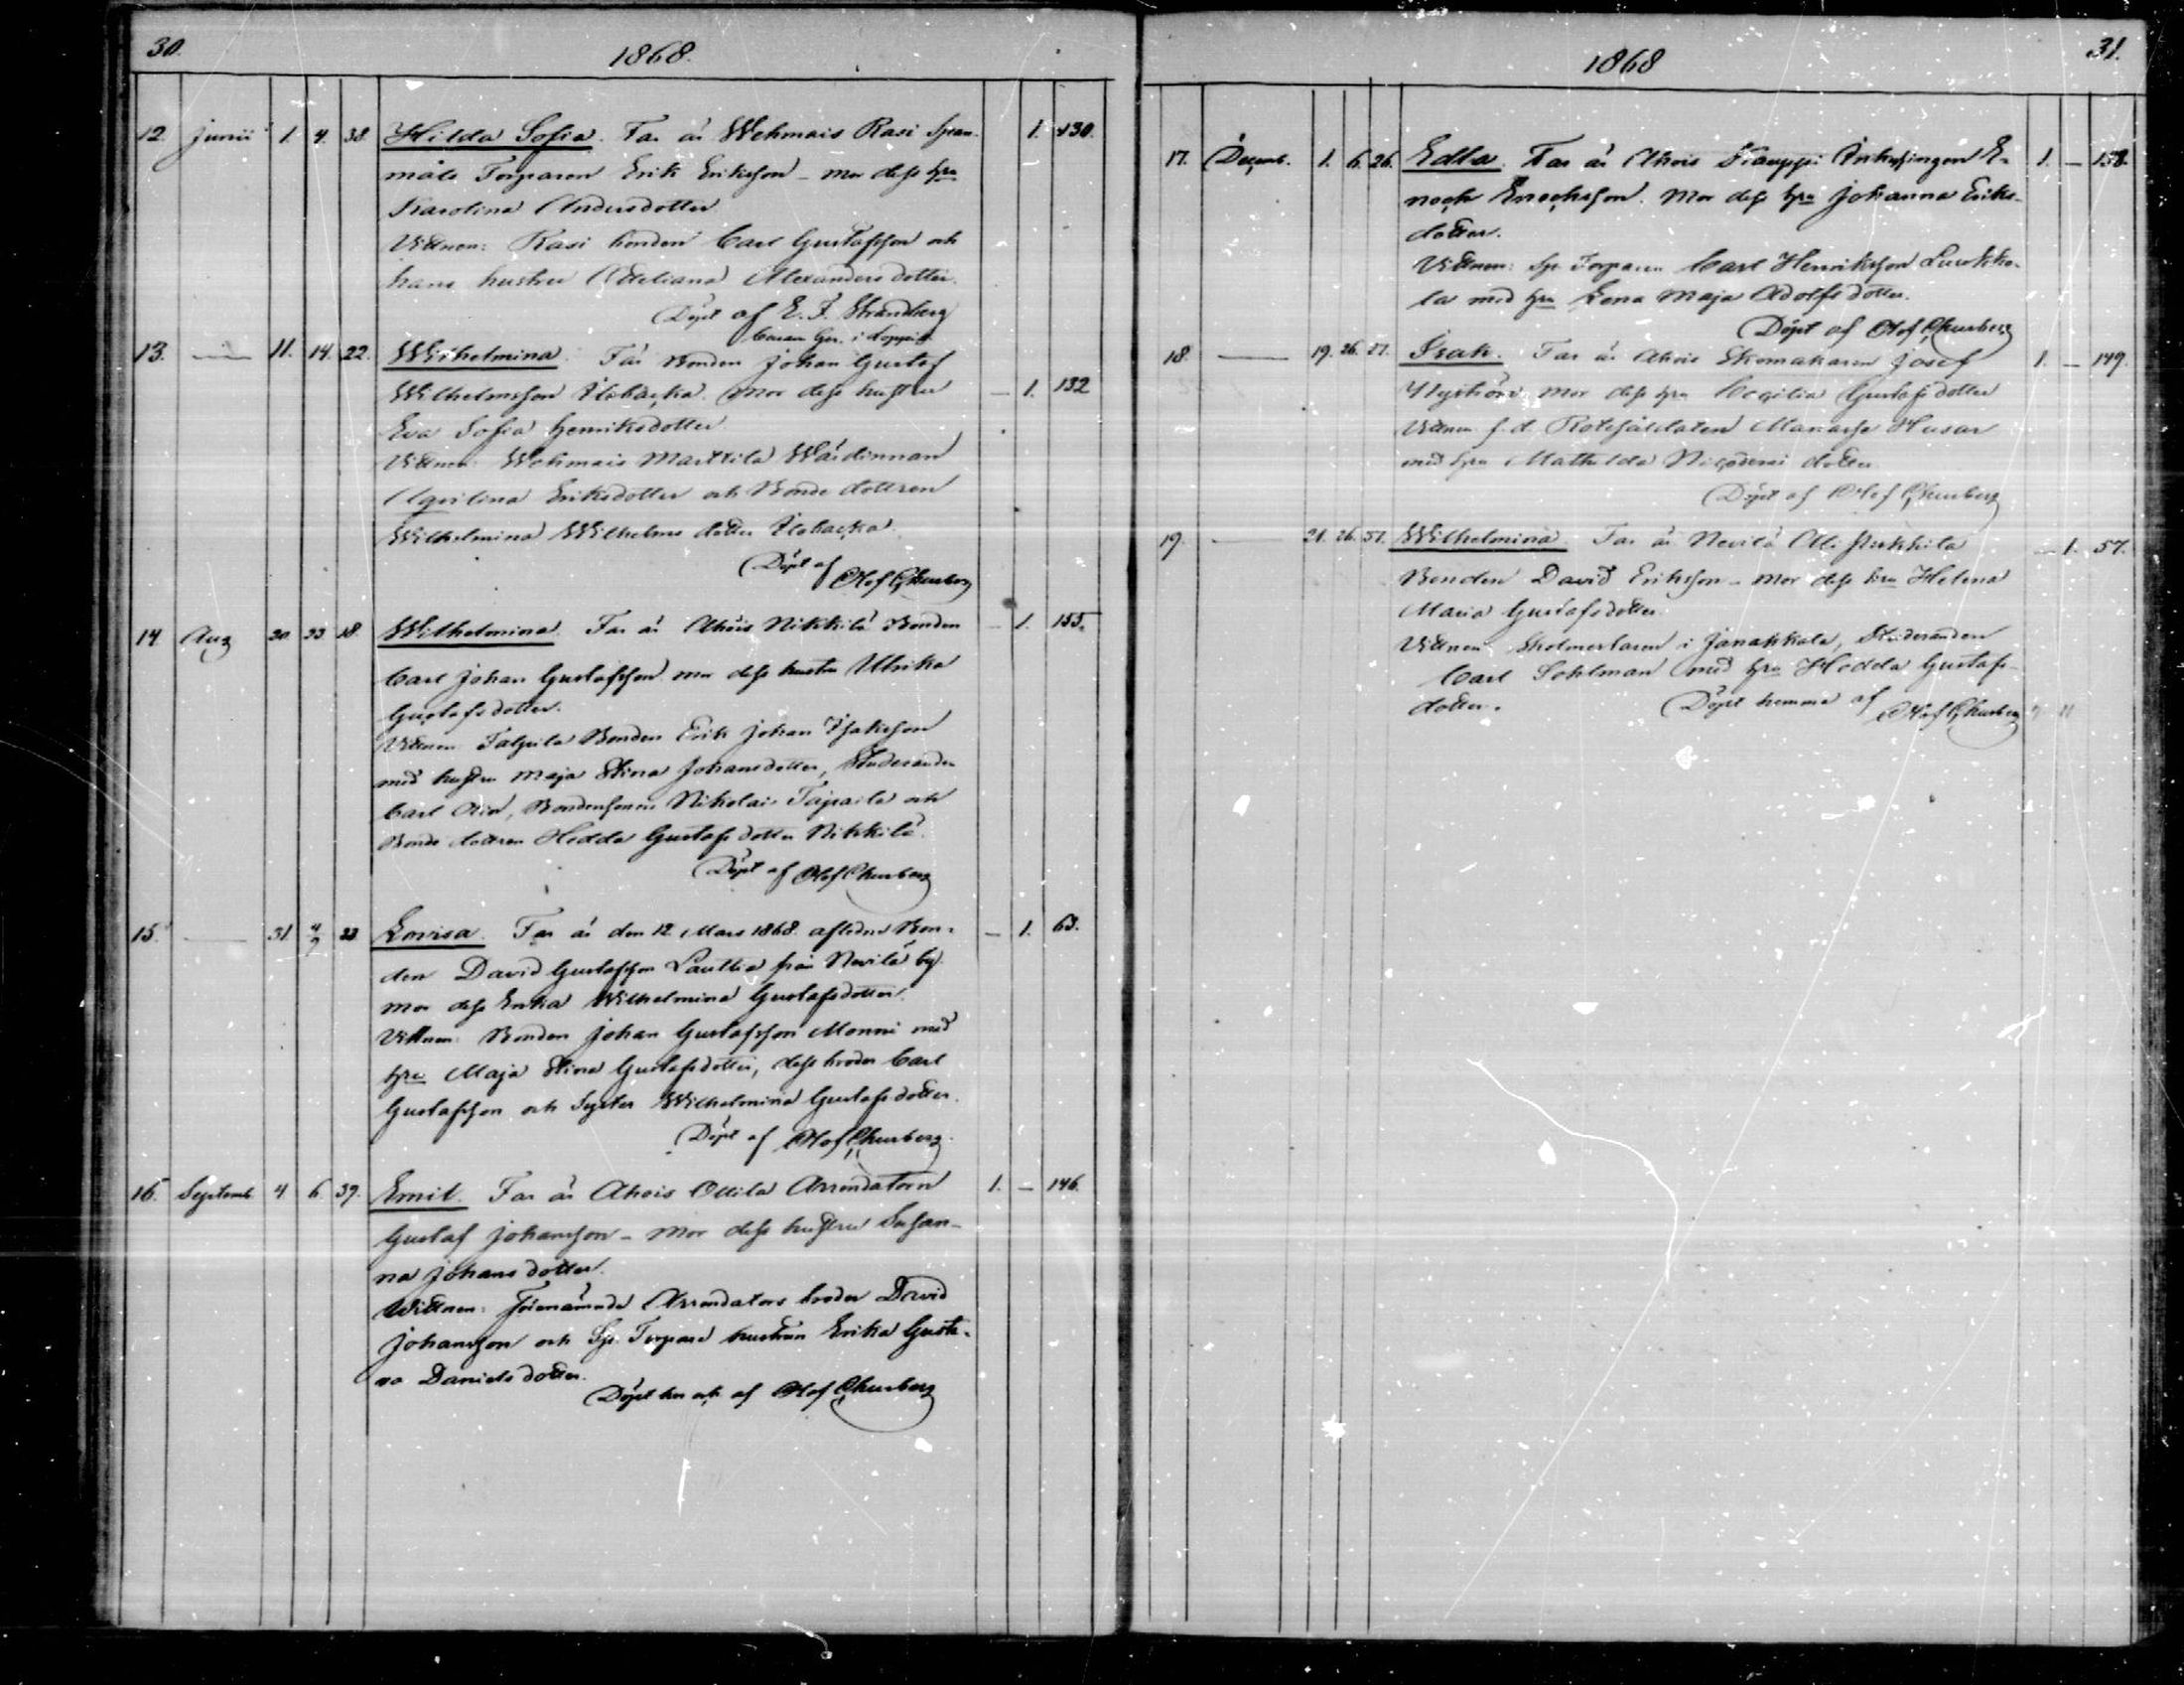 30.
1868.
12. Junii 1. 4. 38. Hilda Sofia. Far är Wehmais Rasi Span- 1. 130.
måls Torparen Erik Eriksson - mor dess hru
Karolina Andersdotter
Vittnen: Rasi bonden Carl Gustafsson och
hans hustru Alexandersdotter.
Döpt af E. J. Strandberg
i Loppis
13. — 11. 14. 22. Wilhelmina. Far Bonden Johan Gustaf
Wilhelmsson Ilobacka. Mor dess hustru — 1. 132
Eva Sofia Henriksdotter
Vittnen: Wehmais Marttila Wärdinnan
Agvilina Eriksdotter och Bonde dottren
Wilhelmina Wilhelms dotter Ilobacka.
Döpt af
Olof Churberg
14. Aug 20. 23. 18. Wilhelmina. Far är Ahois Nikkilä Bonden — 1. 155.
Carl Johan Gustafsson mor dess hustru Ulrika
Gustafsdotter.
Vittnen Bonden Erik Johan Isaksson
med hustru Maja Stina Johansdotter, Studeranden
Carl Bondesonen Nikolai och
Bonde dottren Hedda Gustafsdotter Nikkilä.
Döpt af Olof Churberg
15. — 31. 4/9 23. Lovisa. Far är den 12 Mars 1868 aflidne Bon- — 1. 63.
den David Gustafsson Lauttia från Nevilä by.
mor dess Enka Wilhelmina Gustafsdotter.
Vittnen: Bonden Johan Gustafsson Monni med
hru Maja Stina Gustafsdotter, dess broder Carl
Gustafsson och Syster Wilhelmina Gustafsdotter.
Döpt af Olof Churberg.
16. Septemb 4. 6. 39. Emil. Far är Ahois Ollila Arrendatorn 1. — 146.
Gustaf Johansson - Mor dess hustru Susan-
na Johansdotter.
Wittnen: Förenämnde Arrendators broder David
Johansson och Sp. Torpare hustrun Erika Gusta-
va Danielsdotter.
Döpt af Olof Churberg
1868
31.
17. Decemb. 1. 6. 26. Edla. Far är Ahois Kauppi Inhysingen E- 1. — 158.
noch Enochsson. Mor dess hru Johanna Eriks-
dotter.
Vittnen: Sp. Torparen Carl Henriksson Luukko-
la med hru Lena Maja Adolfsdotter.
Döpt af Olof Churberg
18. — 19. 26. 27. Isak. Far är Ahois Skomakaren Josef 1. — 149.
Nyström mor dess hru Cecilia Gustafsdotter
Vittnen f. d. Rotesoldaten Manasse Husar
med hru Mathilda Nicodemi dotter
Döpt af Olof Churberg
19. — 21. 26. 37. Wilhelmina. Far är Nevilä — 1. 57.
Bonden David Eriksson - Mor dess hru Helena
Maria Gustafsdotter.
Vittnen Skolmestaren i Janakkala, Studeranden
Carl Sohlman med hru Hedda Gustafs-
dotter. Döpt hemma af Olof Churberg